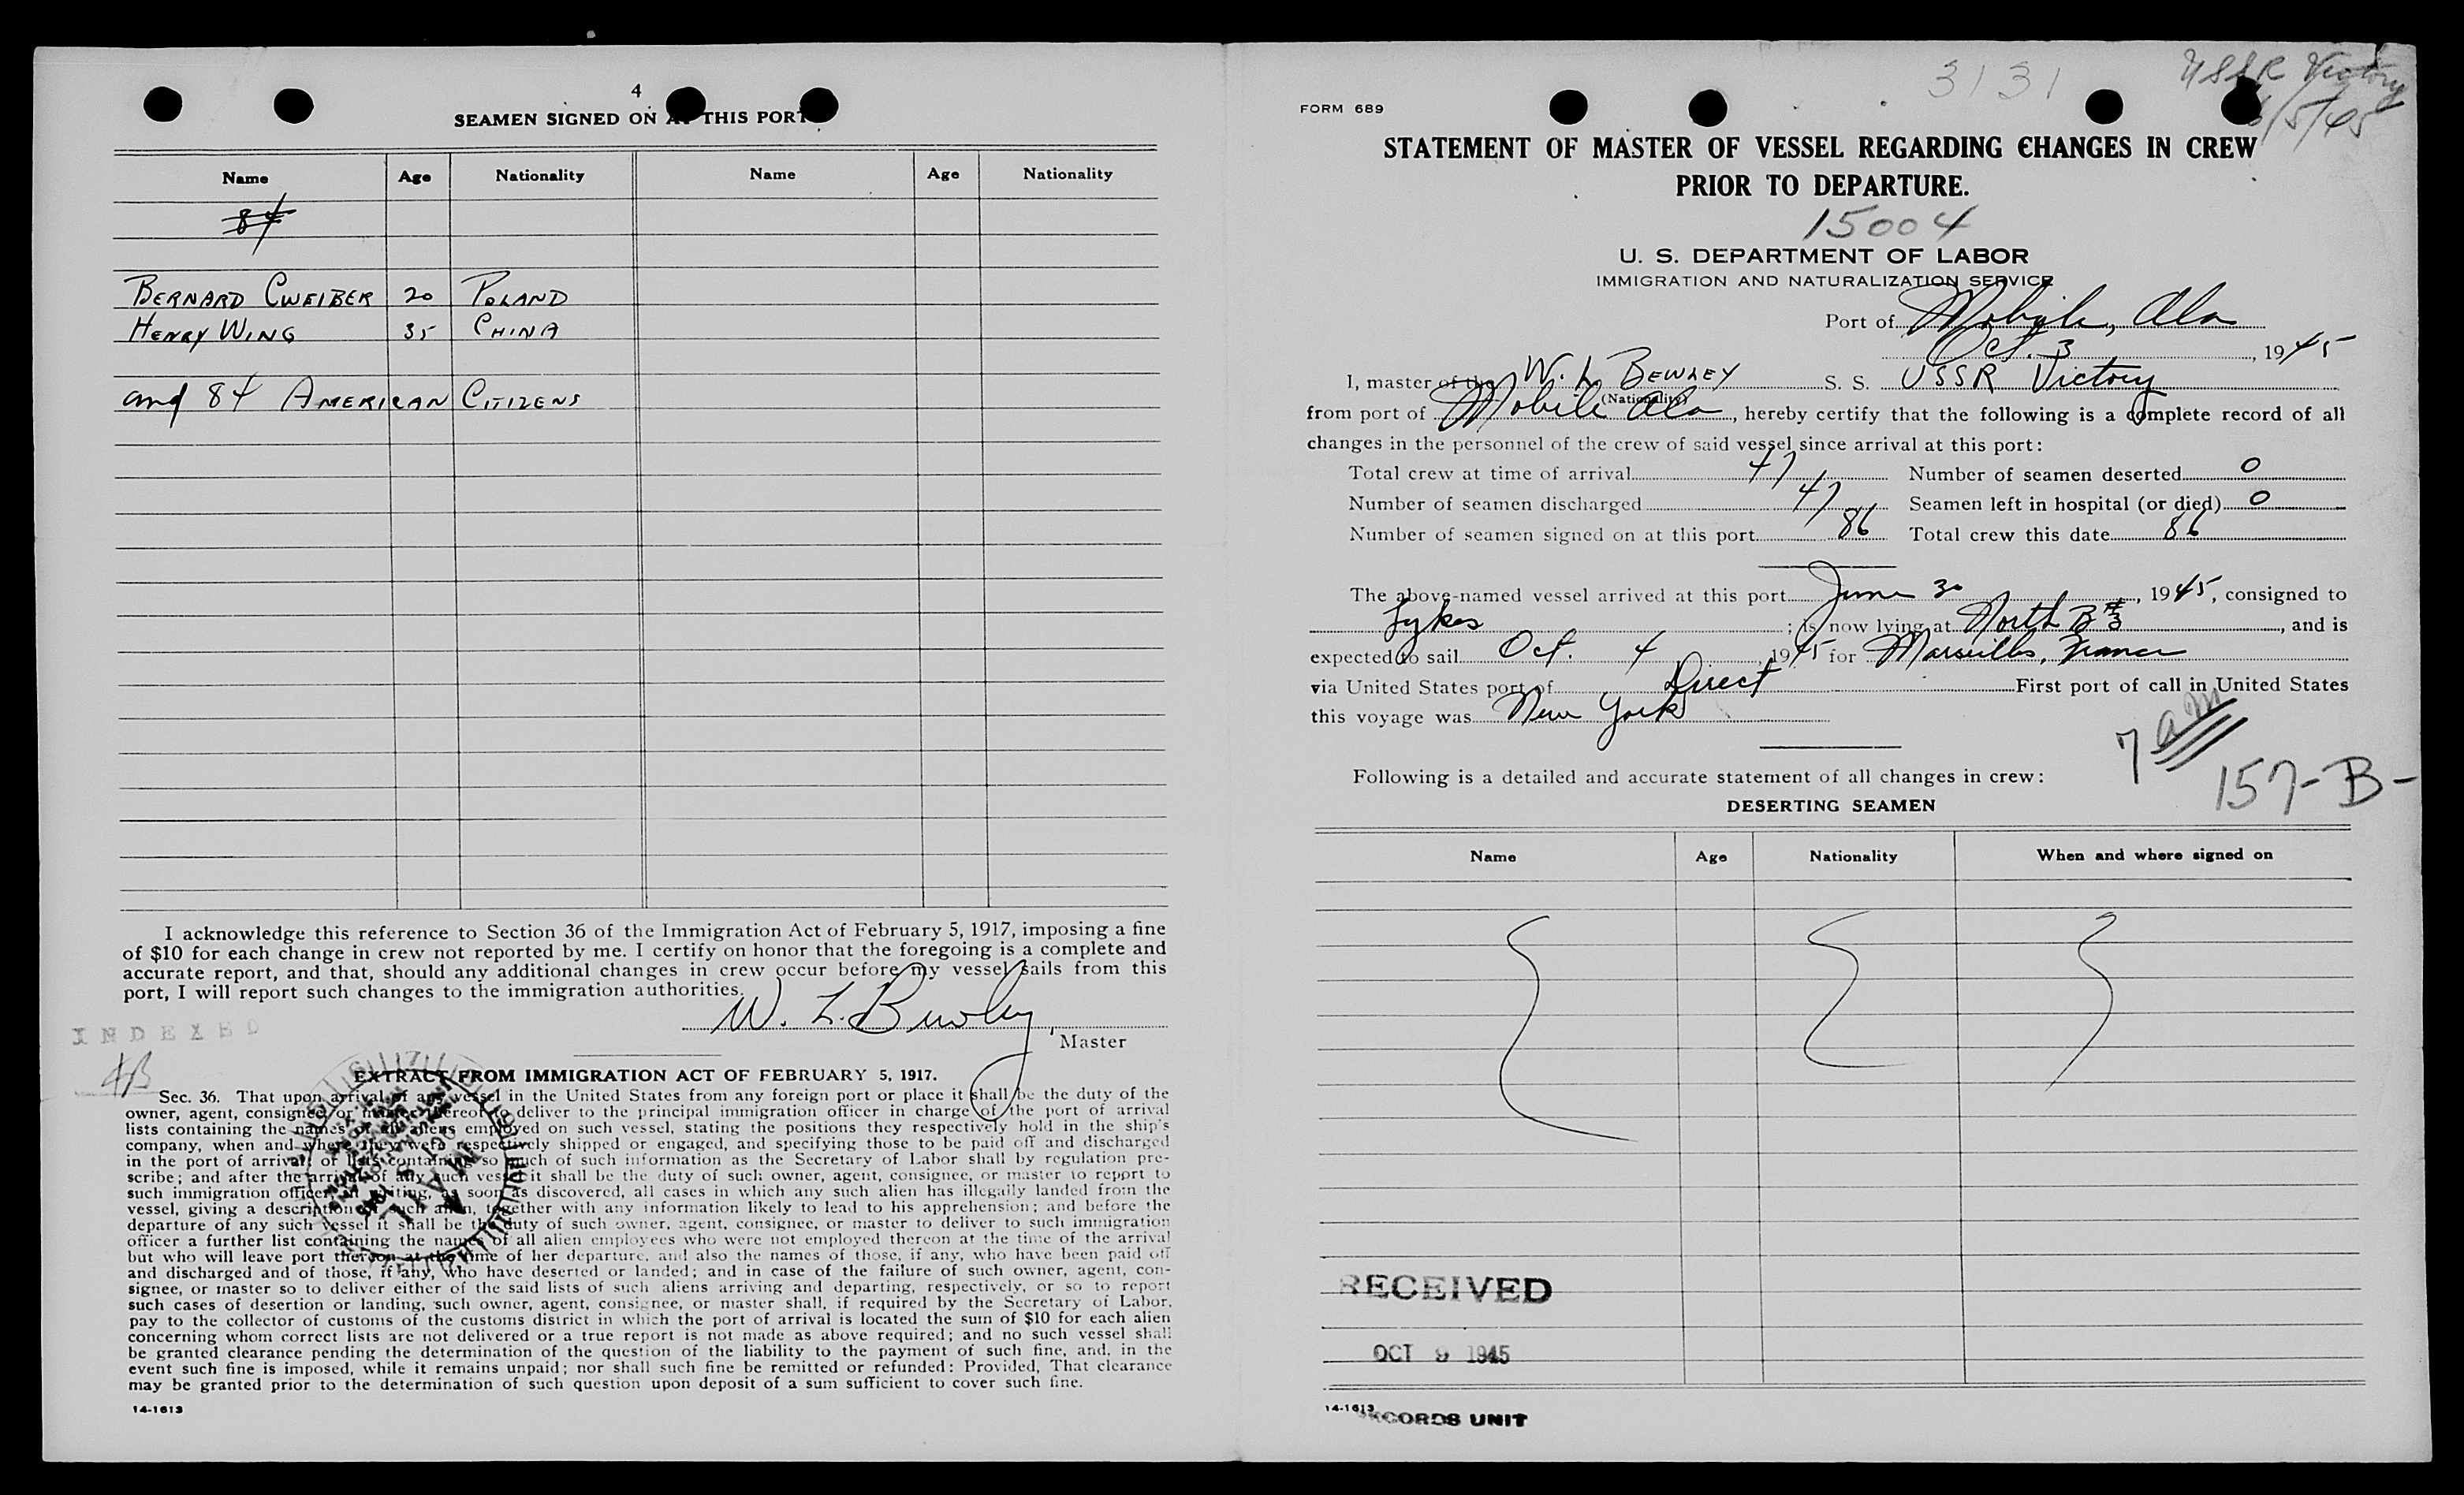 4
SEAMEN SIGNED ON AT THIS PORT
Name Age Nationality Name Age Nationality
84
BERNARD CWEIBER 20 POLAND
HENRY WING 35 CHINA
and 84 AMERICAN CITIZENS
I acknowledge this reference to Section 36 of the Immigration Act of February 5, 1917, imposing a fine
of $10 for each change in crew not reported by me. I certify on honor that the foregoing is a complete and
accurate report, and that, should any additional changes in crew occur before my vessel sails from this
port, I will report such changes to the immigration authorities.
W. L. Bewley, Master
INDEXED
EXTRACT FROM IMMIGRATION ACT OF FEBRUARY 5, 1917.
Sec. 36. That upon arrival of any vessel in the United States from any foreign port or place it shall be the duty of the
owner, agent, consignee, or master thereof to deliver to the principal immigration officer in charge of the port of arrival
lists containing the names of all aliens employed on such vessel, stating the positions they respectively hold in the ship's
company, when and where they were respectively shipped or engaged, and specifying those to be paid off and discharged
in the port of arrival; or lists containing so much of such information as the Secretary of Labor shall by regulation pre-
scribe; and after the arrival of any such vessel it shall be the duty of such owner, agent, consignee, or master to report to
such immigration officer, in writing, as soon as discovered, all cases in which any such alien has illegally landed from the
vessel, giving a description of such alien, together with any information likely to lead to his apprehension; and before the
departure of any such vessel it shall be the duty of such owner, agent, consignee, or master to deliver to such immigration
officer a further list containing the names of all alien employees who were not employed thereon at the time of the arrival
but who will leave port thereon at the time of her departure, and also the names of those, if any, who have been paid off
and discharged and of those, if any, who have deserted or landed; and in case of the failure of such owner, agent, con-
signee, or master so to deliver either of the said lists of such aliens arriving and departing, respectively, or so to report
such cases of desertion or landing, such owner, agent, consignee, or master shall, if required by the Secretary of Labor,
pay to the collector of customs of the customs district in which the port of arrival is located the sum of $10 for each alien
concerning whom correct lists are not delivered or a true report is not made as above required; and no such vessel shall
be granted clearance pending the determination of the question of the liability to the payment of such fine, and, in the
event such fine is imposed, while it remains unpaid; nor shall such fine be remitted or refunded: Provided, That clearance
may be granted prior to the determination of such question upon deposit of a sum sufficient to cover such fine.
14-1613
3131
USSR Victory
FORM 689
STATEMENT OF MASTER OF VESSEL REGARDING CHANGES IN CREW
PRIOR TO DEPARTURE.
15004
U. S. DEPARTMENT OF LABOR
IMMIGRATION AND NATURALIZATION SERVICE
Port of Mobile, Ala
Oct. 3, 1945
I, master of the W. L. BEWLEY S. S. USSR Victory
(Nationality)
from port of Mobile Ala, hereby certify that the following is a complete record of all
changes in the personnel of the crew of said vessel since arrival at this port:
Total crew at time of arrival 47 Number of seamen deserted 0
Number of seamen discharged 47 Seamen left in hospital (or died) 0
Number of seamen signed on at this port 86 Total crew this date 86
The above-named vessel arrived at this port June 30, 1945, consigned to
Lykes; is now lying at North B #3, and is
expected to sail Oct. 4, 1945 for Marseilles, France
via United States port of Direct First port of call in United States
this voyage was New York
7 am
157-B-
Following is a detailed and accurate statement of all changes in crew:
DESERTING SEAMEN
Name Age Nationality When and where signed on
RECEIVED
OCT 9 1945
RECORDS UNIT
14-1613